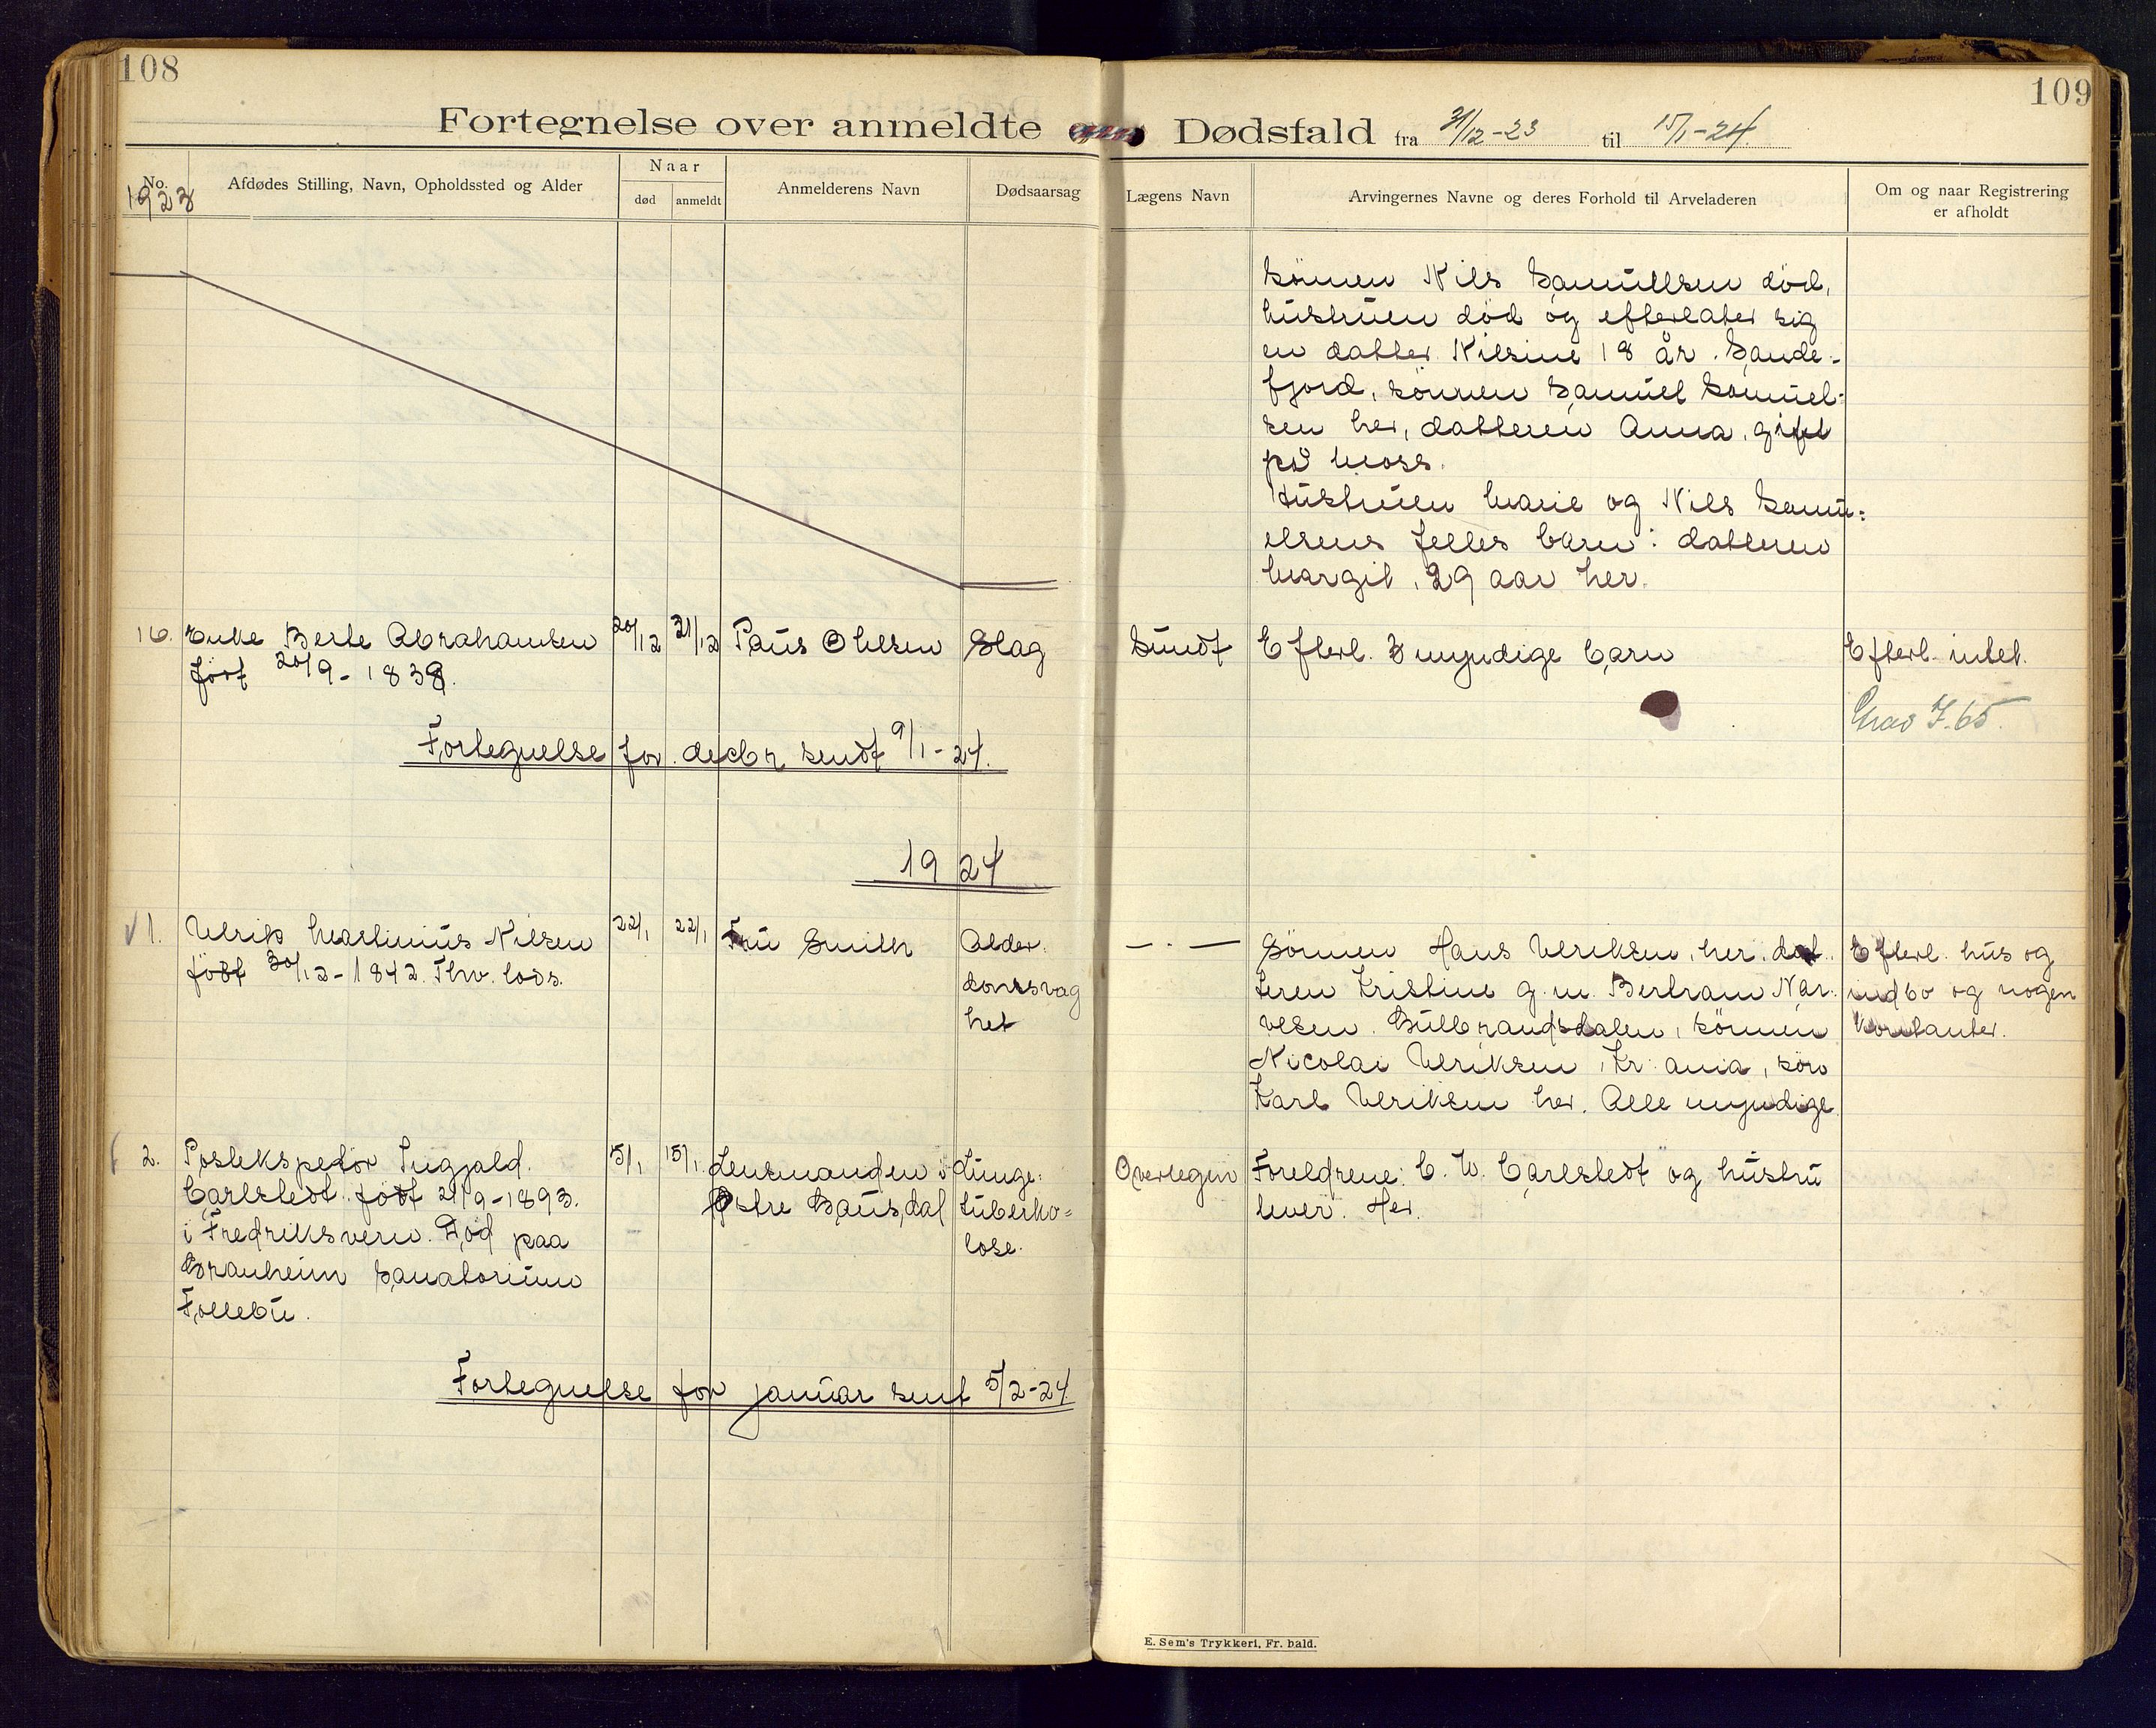 108
109
Fortegnelse over anmeldte Dødsfald fra 31/12-23 til 15/1-24.
No. Afdødes Stilling, Navn, Opholdssted og Alder Naar død anmeldt Anmelderens Navn Dødsaarsag Lægens Navn Arvingernes Navne og deres Forhold til Arveladeren Om og naar Registrering er afholdt
1923
sönnen Nils Samuelsen död,
hustruen död og efterlater sig
en datter Nilsine 18 år. Sande-
fjord, sönnen Samuel Samuel-
sen her, datteren Anna, gift
på Moss.
Hustruen Marie og Nils Samu-
elsens felles barn: datteren
Margit, 29 aar her.
16. Enke Berte Abrahamsen 20/12 31/12 Paus Ohlsen Slag Sundt Efterl. 3 myndige barn Efterl. intet.
født 20/9-1838.
Grav I. 65.
Fortegnelse for decbr sendt 9/1-24.
1924
1. Ulrik Martinius Nilsen 22/1 22/1 Fru Smith Alder- — " — Sönnen Hans Ulriksen, her, dat- Efterl. hus og
født 30/12-1842. Fhv. lods. domssvag teren Kristine g.m. Bertram Nar- indbo og nogen
het vesen. Gulbrandsdalen, sönnen kontanter.
Nicolai Ulriksen, Kr.ania, sön
Karl Ulriksen her. Alle myndige
2. Postekspedör Ingjald 15/1 15/1. Lensmanden i Lunge- Overlegen Foreldrene: C. W. Carlstedt og hustru
Carlstedt født 21/9-1893. Østre Gausdal tuberko- lever. Her.
i Fredriksvern. Död paa lose.
Granheim Sanatorium
Follebu.
Fortegnelse for januar sent 5/2-24
E. Sem's Trykkeri, Fr. hald.